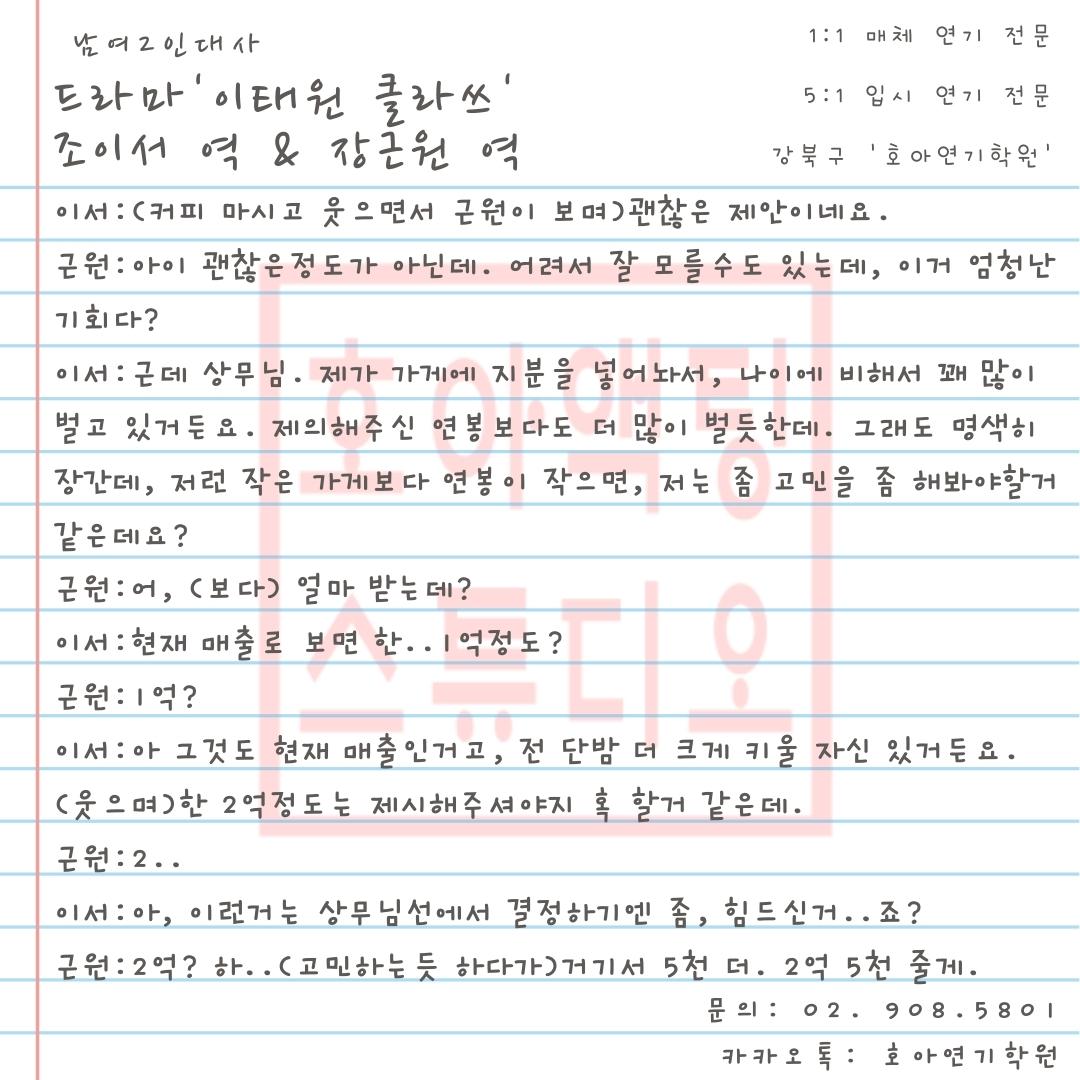 남여2인대사
드라마'이태원 클라쓰'
조이서 역 & 장근원 역
1:1 매체 연기 전문
5:1 입시 연기 전문
강북구 '호아연기학원'
이서:(커피 마시고 웃으면서 근원이 보며)괜찮은 제안이네요.
근원:아이 괜찮은정도가 아닌데. 어려서 잘 모를수도 있는데, 이거 엄청난
기회다?
이서:근데 상무님. 제가 가게에 지분을 넣어놔서, 나이에 비해서 꽤 많이
벌고 있거든요. 제의해주신 연봉보다도 더 많이 벌듯한데. 그래도 명색히
장간데, 저런 작은 가게보다 연봉이 작으면, 저는 좀 고민을 좀 해봐야할거
같은데요?
근원:어, (보다) 얼마 받는데?
이서:현재 매출로 보면 한..1억정도?
근원:1억?
이서:아 그것도 현재 매출인거고, 전 단밤 더 크게 키울 자신 있거든요.
(웃으며)한 2억정도는 제시해주셔야지 혹 할거 같은데.
근원:2..
이서:아, 이런거는 상무님선에서 결정하기엔 좀, 힘드신거..죠?
근원:2억? 하..(고민하는듯 하다가)거기서 5천 더. 2억 5천 줄게.
문의: 02. 908.5801
카카오톡: 호아연기학원
호아액팅
스튜디오